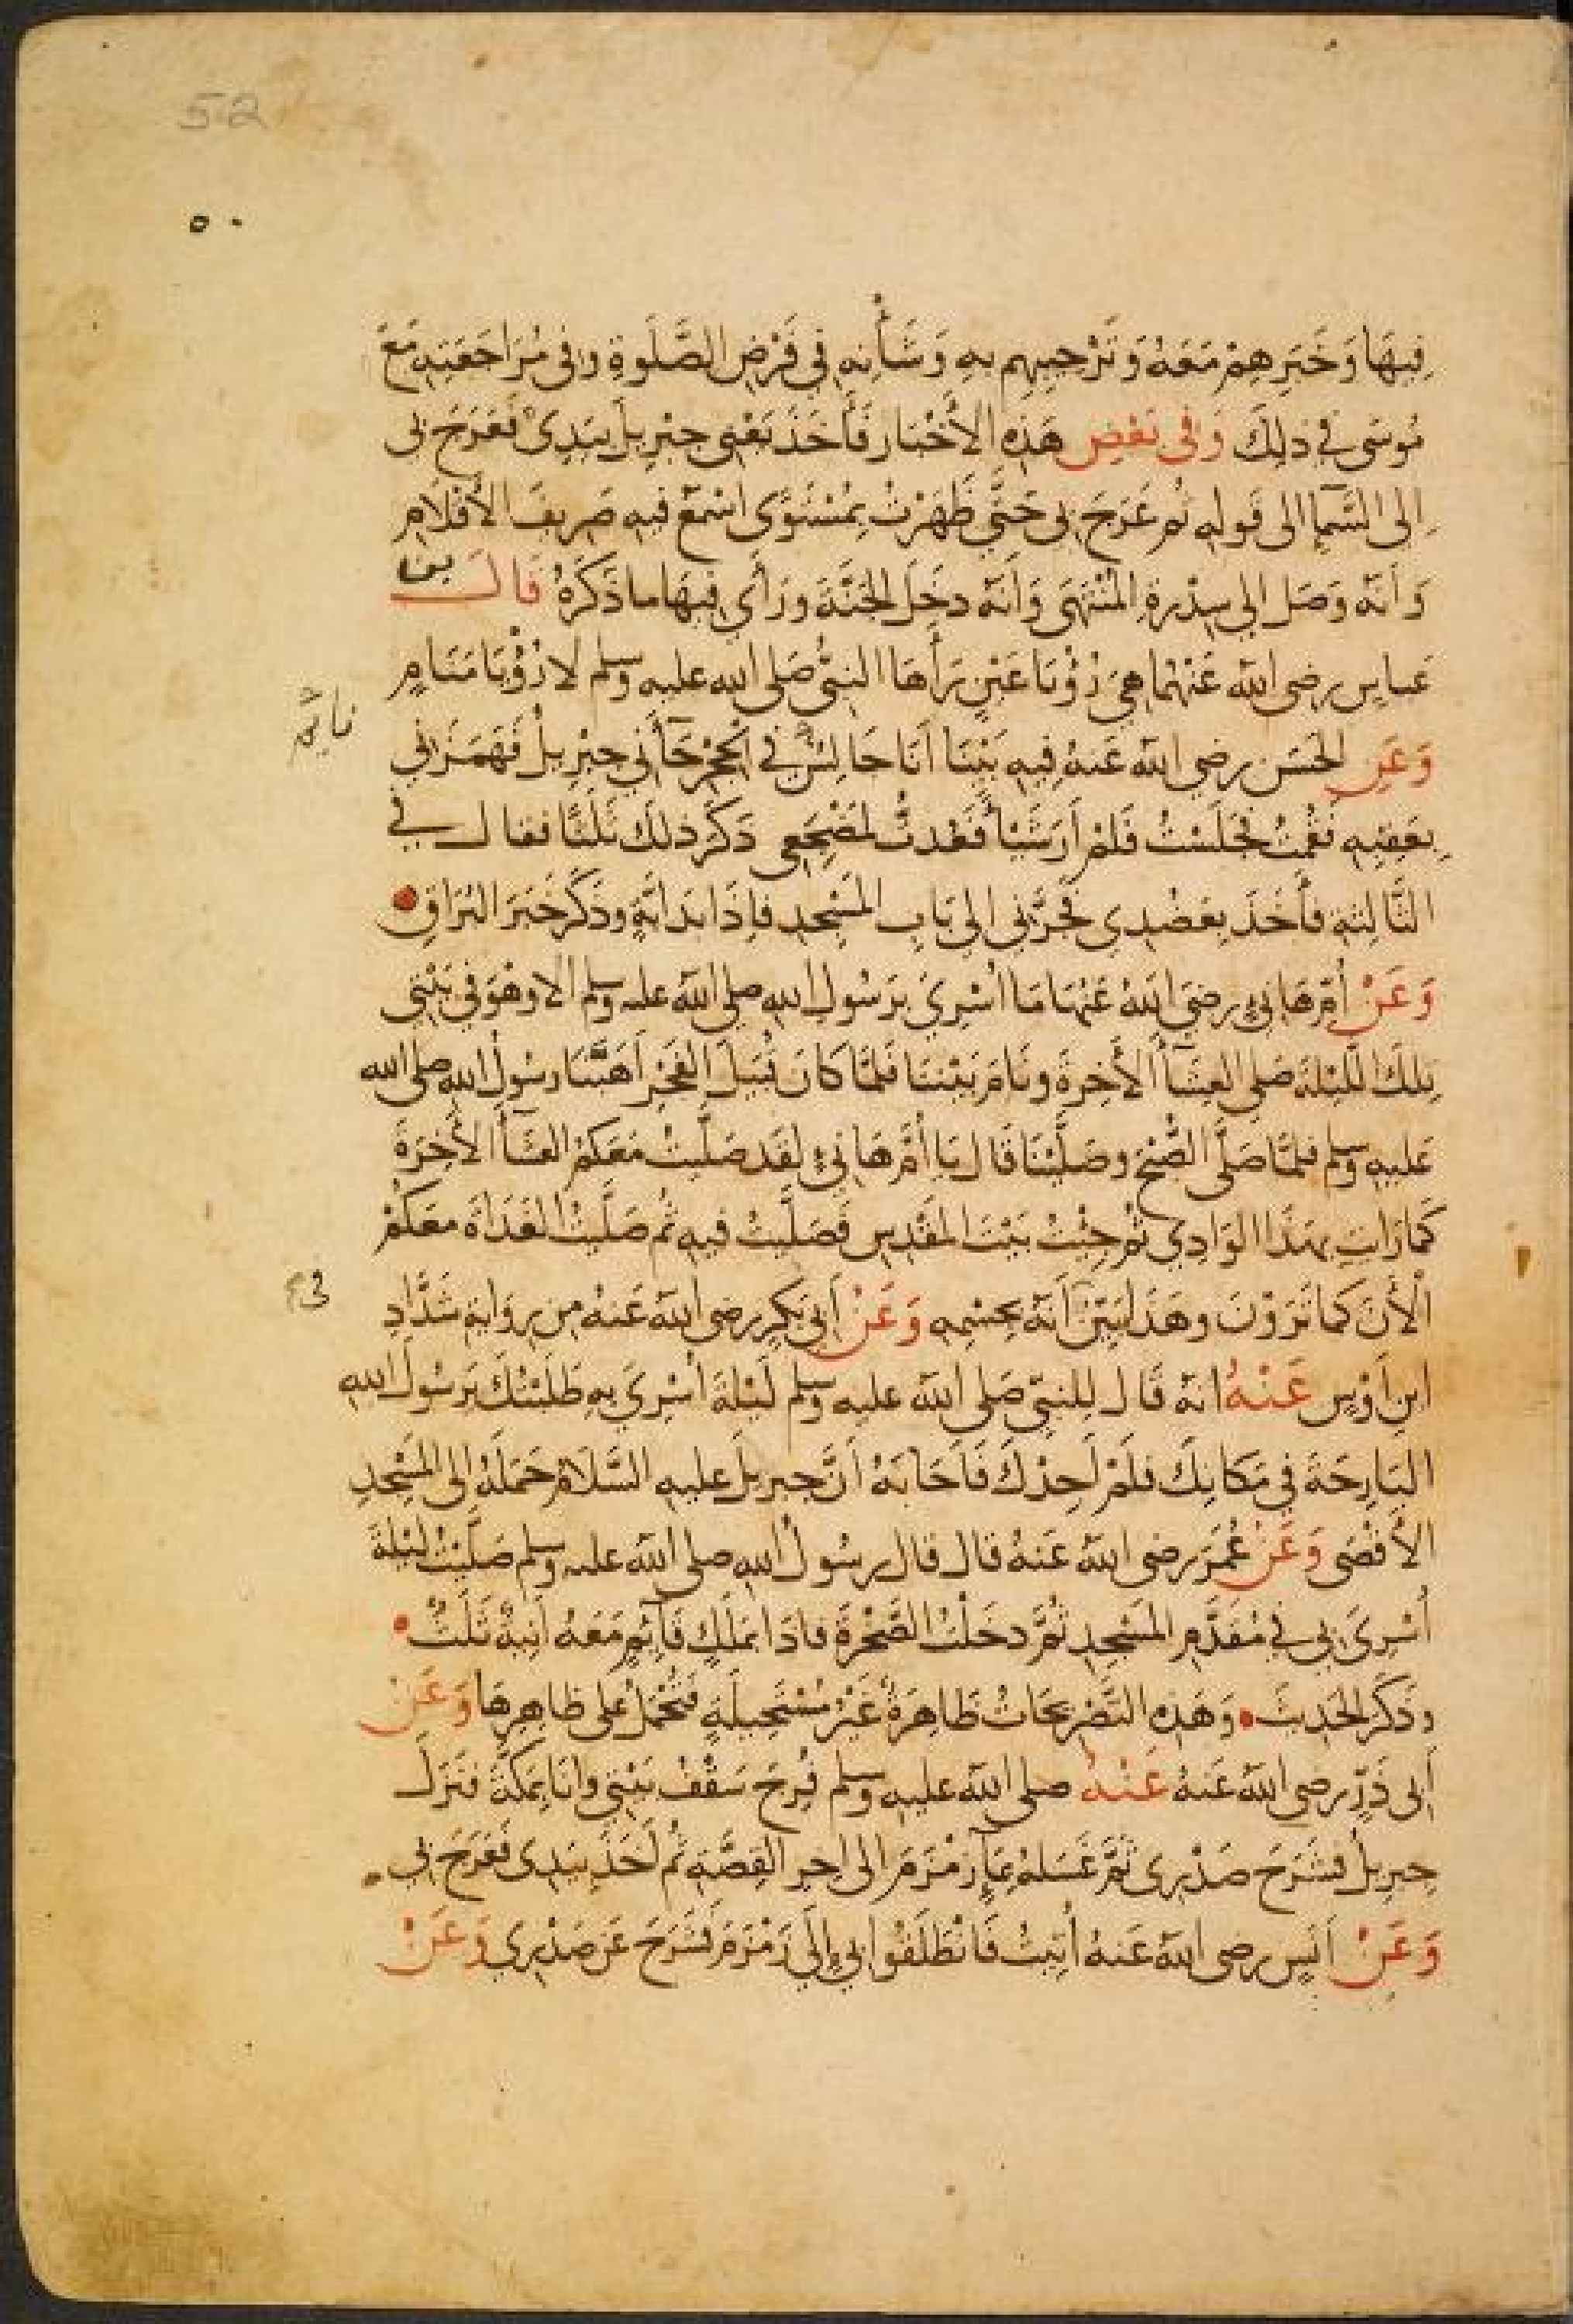 52
٥٠
فِيهَا وَخَبَرِهِمْ مَعَهُ وَتَرْحِيبِهِم بِهِ وَشَأْنِهِ فِي فَرْضِ الصَّلَوةِ وفى مُرَاجَعَتِهِ مَعَ
مُوسَى فِي ذلِكَ وَفى بَعْضِ هَذِهِ الأَخْبَار فَأَخَذَ يَعْنِي جِبْرِيلَ بِيَدِىْ فَعَرَجَ بى
إلى السَّمآ إلى قَولِهِ ثُم عَرَجَ بى حَتَّى ظَهَرْتُ بِمُسْتَوًى اسْمَعُ فِيهِ صَرِيفَ الأَقْلَامِ
وَأَنَّهُ وَصَلَ إلى سِدْرَةِ المُنْتَهَى وَأَنَّهُ دخَلَ الجَنَّةَ ورَأَى فِيهَا ما ذَكَرَهُ قَالَ بن
عَباسٍ رضى الله عَنْهُمَا هِىَ رُؤْيَا عَيْنٍ رَأَهَا النبىُّ صَلى الله عليه وسلم لا رُؤْيَا مَنَامٍ
وَعَنِ الحَسَن رضي الله عَنهُ فِيهِ بَيْنَا أَنَا جَالِسٌ فى الحِجْرِ جَآءَنِي جِبْرِيلُ فَهَمَزَنِي
نايم
بِعَقِبِهِ فَقُمْتُ فَجَلَسْتُ فَلَمْ أَرَ شَيْأً فَعُدتُّ لِمَضْجَعِى ذكَرَ ذلكَ ثَلثًا فقال فى
الثَّالِثَةِ فأَخَذَ بِعَضُدِي فَجَرَّنِي إلى بَابِ المَسْجِدِ فإِذَا بدَابَّةٍ وذَكَرَ خَبَرَ البُرَاقِ
وَعَنْ أُمِّ هَانِئٍ رضىَ اللهُ عَنْهَا مَا أُسْرِيَ بِرَسُولِ اللهِ صلى الله عليه وسلم إلا وهْوَ فى بَيْتِي
تِلكَ اللَّيْلَةَ صَلى العِشَآءَ الأَخِرةَ ونَامَ بَيْنَنَا فَلَمَّا كَانَ قُبَيلَ الفَجْرِ أَهَبَّنَا رسُولُ اللهِ صلى الله
عَليهِ وسلم فلمَّا صَلَّى الصُّبْحَ وصَلَّيْنَا قَالَ يَا أُمَّ هَانِئٍ لقَد صَلَّيتُ مَعَكمُ العشَآءَ الأَخِرَةَ
كَمَا رَأيتِ بهَذَا الوَادِي ثُم جِئْتُ بَيْتَ المَقْدِسِ فَصَلَّيتُ فيهِ ثُم صَلَّيْتُ الغَدَاةَ معَكُمْ
الْأَنَ كما تَرَوْنَ وهَذَا بَيِّنٌ أَنَّهُ بِجِسْمِهِ وَعَنْ أَبِى بَكرٍ رضى الله عَنهُ مِن رِوَايَةِ شَدَّادِ
ابنِ أَوْسٍ عَنْهُ انهُ قَال لِلنبىِّ صَلى الله عليه وسلم لَيْلَةَ أُسْرِىَ بِهِ طَلَبْتُكَ يَرَسُولَ اللهِ
البَارِحَةَ فِى مَكَانِكَ فلَمْ أَجِدْكَ فَأَجَابَهُ أنَّ جِبريلَ عليهِ السَّلامُ حَمَلَهُ إلى المَسْجِدِ
الأَقْصَى وَعَنْ عُمَرَ رضى اللهُ عَنهُ قال قال رسُولُ اللهِ صلى الله عليه وسلم صَلَّيْتُ لَيْلَةَ
أُسْرِىَ بى فى مُقَدَّمِ المَسْجِدِ ثُمَّ دخَلْتُ الصَّخْرَةَ فاذَا بمَلَكٍ قَآئِمٍ مَعَهُ أَنِيةٌ ثَلَثٌ
وذَكَرَ الحَديثَ وَهَذِهِ التَّصْرِيحَاتُ ظَاهِرَةٌ غَيْرُ مُسْتَحِيلَةٍ فَتُحْمَلُ على ظاهِرِهَا وَعَنْ
أَبِى ذَرٍّ رضى الله عَنهُ عَنْهُ صلى الله عليه وسلم فُرِجَ سَقْفُ بَيْتِي وانَا بِمَكَّةَ فنَزَلَ
جِبرِيلُ فشَرَحَ صَدْرِى ثُمَّ غَسَلَهُ بِمَآءِ زَمْزَمَ الى اخِرِ القِصَّةِ ثُم أَخَذَ بِيَدِى فَعَرَجَ بى
وَعَنْ أَنَسٍ رضى اللهُ عَنهُ أُتِيتُ فَانْطَلَقُوا بِى إِلَى زَمْزَمَ فَشَرَحَ عَن صَدْرِي وَعَنْ